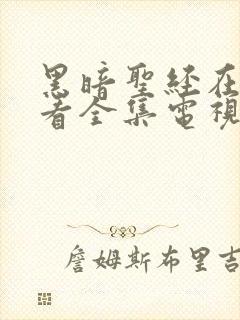 黑暗聖經在
看全集電視
詹姆斯布里吉